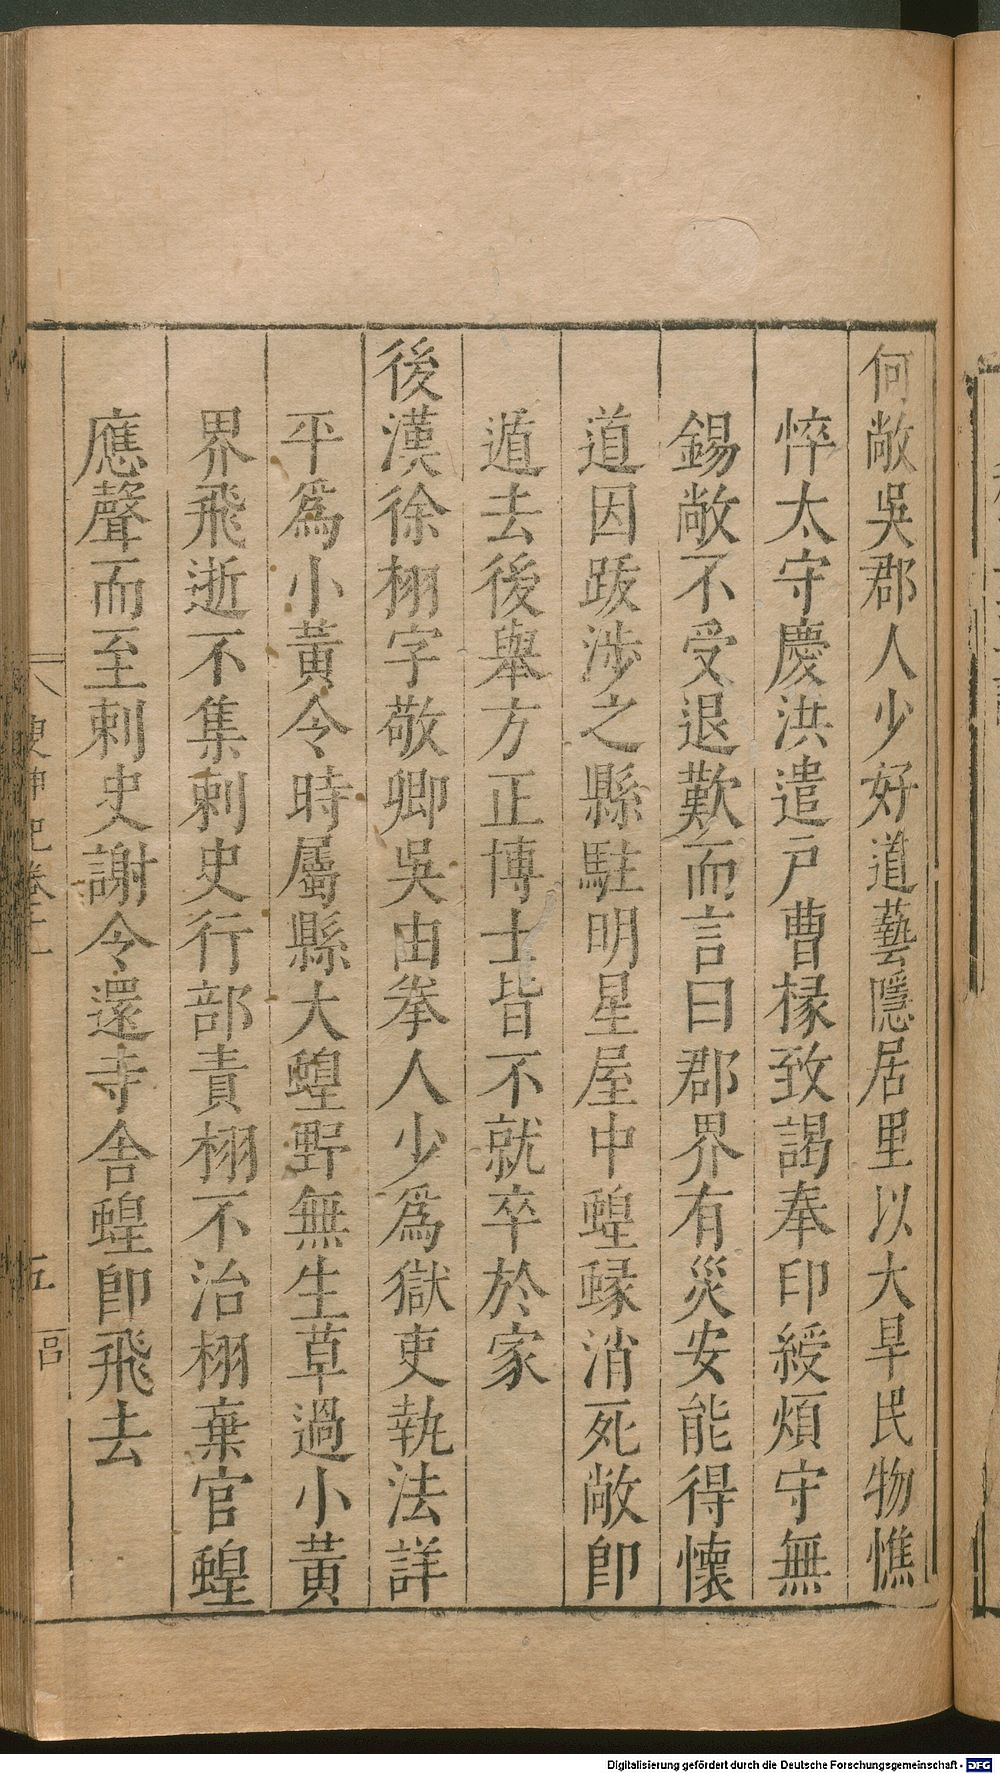 何敞吳郡人少好道藝隱居里以大旱民物憔
悴太守慶洪遣戸曹椽致謁奉印綬煩守無
錫敞不受退歎而言曰郡界有災安能得懷
道因跋涉之縣駐明星屋中蝗蝝消死敞卽
遁去後舉方正博士皆不就卒於家
後漢徐栩字敬卿吳由拳人少爲獄吏執法詳
平爲小黃令時屬縣大蝗野無生草過小黃
界飛逝不集刺史行部責栩不治栩棄官蝗
應聲而至刺史謝令還寺舍蝗卽飛去
神記卷十一
五
Digitalisierung gefördert durch die Deutsche Forschungsgemeinschaft - DFG